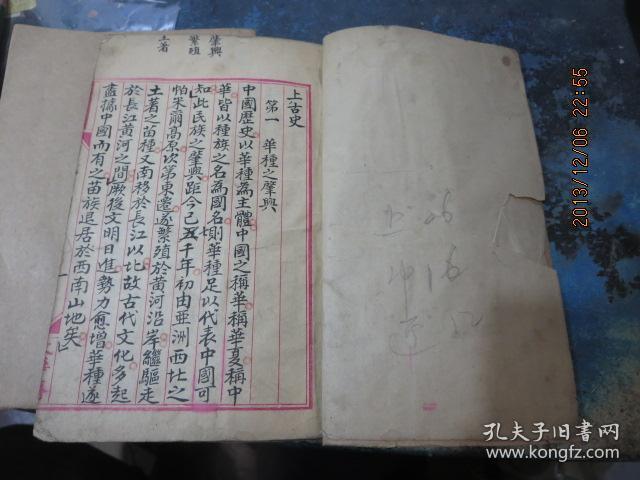 肇興
繁殖
土著
上古史
第一 華種之肇興
中國歷史以華種為主體中國之稱華稱華夏稱中
華皆以種族之名為國名則華種足以代表中國可
知此民族之肇興距今已五千年初由亚洲西北之
帕米爾高原次第東遷遂繁殖於黃河沿岸繼驅走
土著之苗種又南移於長江以北故古代文化多起
於長江黃河之間厥後文明日進勢力愈增華種遂
盡擄中國而有之苗族退居於西南山地矣
2013/12/06 22:55
孔夫子旧书网
www.kongfz.com